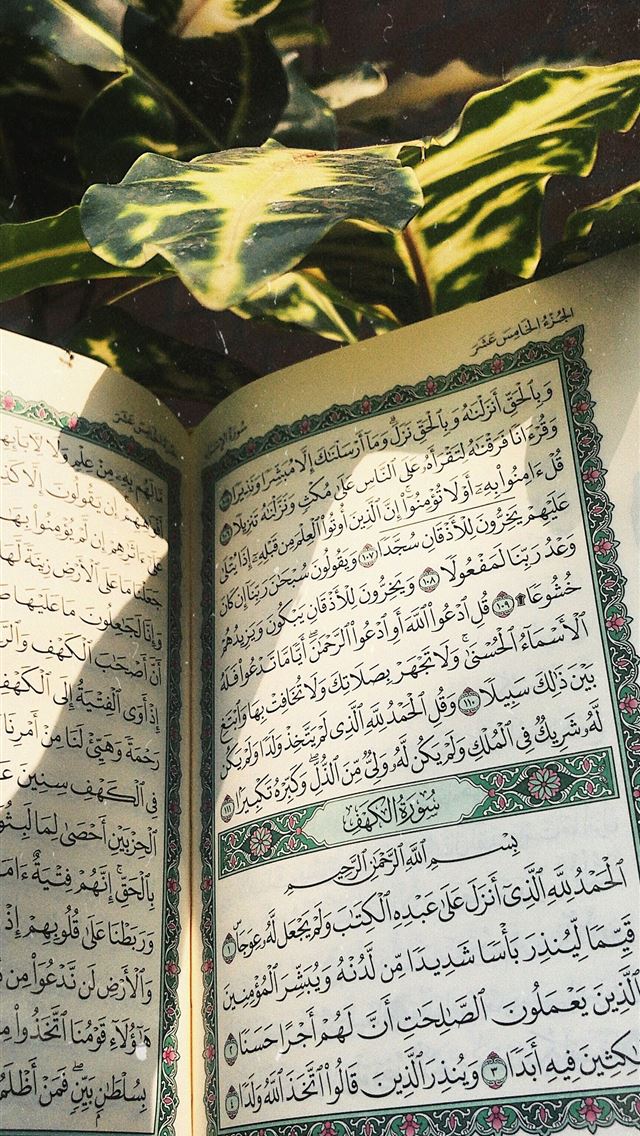 الجزء الخامس عشر
سورة الإسراء
وَبِٱلۡحَقِّ أَنزَلۡنَٰهُ وَبِٱلۡحَقِّ نَزَلَۗ وَمَآ أَرۡسَلۡنَٰكَ إِلَّا مُبَشِّرٗا وَنَذِيرٗا ١٠٥
وَقُرۡءَانٗا فَرَقۡنَٰهُ لِتَقۡرَأَهُۥ عَلَى ٱلنَّاسِ عَلَىٰ مُكۡثٖ وَنَزَّلۡنَٰهُ تَنزِيلٗا ١٠٦
قُلۡ ءَامِنُواْ بِهِۦٓ أَوۡ لَا تُؤۡمِنُوٓاْۚ إِنَّ ٱلَّذِينَ أُوتُواْ ٱلۡعِلۡمَ مِن قَبۡلِهِۦٓ إِذَا يُتۡلَىٰ
عَلَيۡهِمۡ يَخِرُّونَۤ لِلۡأَذۡقَانِۤ سُجَّدٗاۤ ١٠٧ وَيَقُولُونَ سُبۡحَٰنَ رَبِّنَآ إِن كَانَ
وَعۡدُ رَبِّنَا لَمَفۡعُولٗا ١٠٨ وَيَخِرُّونَ لِلۡأَذۡقَانِ يَبۡكُونَ وَيَزِيدُهُمۡ
خُشُوعٗا۩ ١٠٩ قُلِ ٱدۡعُواْ ٱللَّهَ أَوِ ٱدۡعُواْ ٱلرَّحۡمَٰنَۖ أَيّٗا مَّا تَدۡعُواْ فَلَهُ
ٱلۡأَسۡمَآءُ ٱلۡحُسۡنَىٰۚ وَلَا تَجۡهَرۡ بِصَلَاتِكَ وَلَا تُخَافِتۡ بِهَا وَٱبۡتَغِ
بَيۡنَ ذَٰلِكَ سَبِيلٗا ١١٠ وَقُلِ ٱلۡحَمۡدُ لِلَّهِ ٱلَّذِي لَمۡ يَتَّخِذۡ وَلَدٗا وَلَمۡ يَكُن
لَّهُۥ شَرِيكٞ فِي ٱلۡمُلۡكِ وَلَمۡ يَكُن لَّهُۥ وَلِيّٞ مِّنَ ٱلذُّلِّۖ وَكَبِّرۡهُ تَكۡبِيرَۢا ١١١
سُورَةُ الكَهْفِ
بِسۡمِ ٱللَّهِ ٱلرَّحۡمَٰنِ ٱلرَّحِيمِ
ٱلۡحَمۡدُ لِلَّهِ ٱلَّذِيٓ أَنزَلَ عَلَىٰ عَبۡدِهِ ٱلۡكِتَٰبَ وَلَمۡ يَجۡعَل لَّهُۥ عِوَجَاۜ ١
قَيِّمٗا لِّيُنذِرَ بَأۡسٗا شَدِيدٗا مِّن لَّدُنۡهُ وَيُبَشِّرَ ٱلۡمُؤۡمِنِينَ
ٱلَّذِينَ يَعۡمَلُونَ ٱلصَّٰلِحَٰتِ أَنَّ لَهُمۡ أَجۡرًا حَسَنٗا ٢
مَّٰكِثِينَ فِيهِ أَبَدٗا ٣ وَيُنذِرَ ٱلَّذِينَ قَالُواْ ٱتَّخَذَ ٱللَّهُ وَلَدٗا ٤
الجزء الخامس عشر
مَّا لَهُم بِهِۦ مِنۡ عِلۡمٖ وَلَا لِأٓبَآئِهِمۡ
أَفۡوَٰهِهِمۡۚ إِن يَقُولُونَ إِلَّا كَذِبٗا
عَلَىٰٓ ءَاثَٰرِهِمۡ إِن لَّمۡ يُؤۡمِنُواْ بِهَٰذَا
جَعَلۡنَا مَا عَلَى ٱلۡأَرۡضِ زِينَةٗ لَّهَا
وَإِنَّا لَجَٰعِلُونَ مَا عَلَيۡهَا
أَنَّ أَصۡحَٰبَ ٱلۡكَهۡفِ وَٱلرَّقِيمِ
إِذۡ أَوَى ٱلۡفِتۡيَةُ إِلَى ٱلۡكَهۡفِ
رَحۡمَةٗ وَهَيِّئۡ لَنَا مِنۡ أَمۡرِنَا
فِي ٱلۡكَهۡفِ سِنِينَ
ٱلۡحِزۡبَيۡنِ أَحۡصَىٰ لِمَا لَبِثُوٓاْ
بِٱلۡحَقِّۚ إِنَّهُمۡ فِتۡيَةٌ
وَرَبَطۡنَا عَلَىٰ قُلُوبِهِمۡ إِذۡ
وَٱلۡأَرۡضِ لَن نَّدۡعُوَاْ مِن
هَٰٓؤُلَآءِ قَوۡمُنَا ٱتَّخَذُواْ
بِسُلۡطَٰنِۭ بَيِّنٖۖ فَمَنۡ أَظۡلَمُ